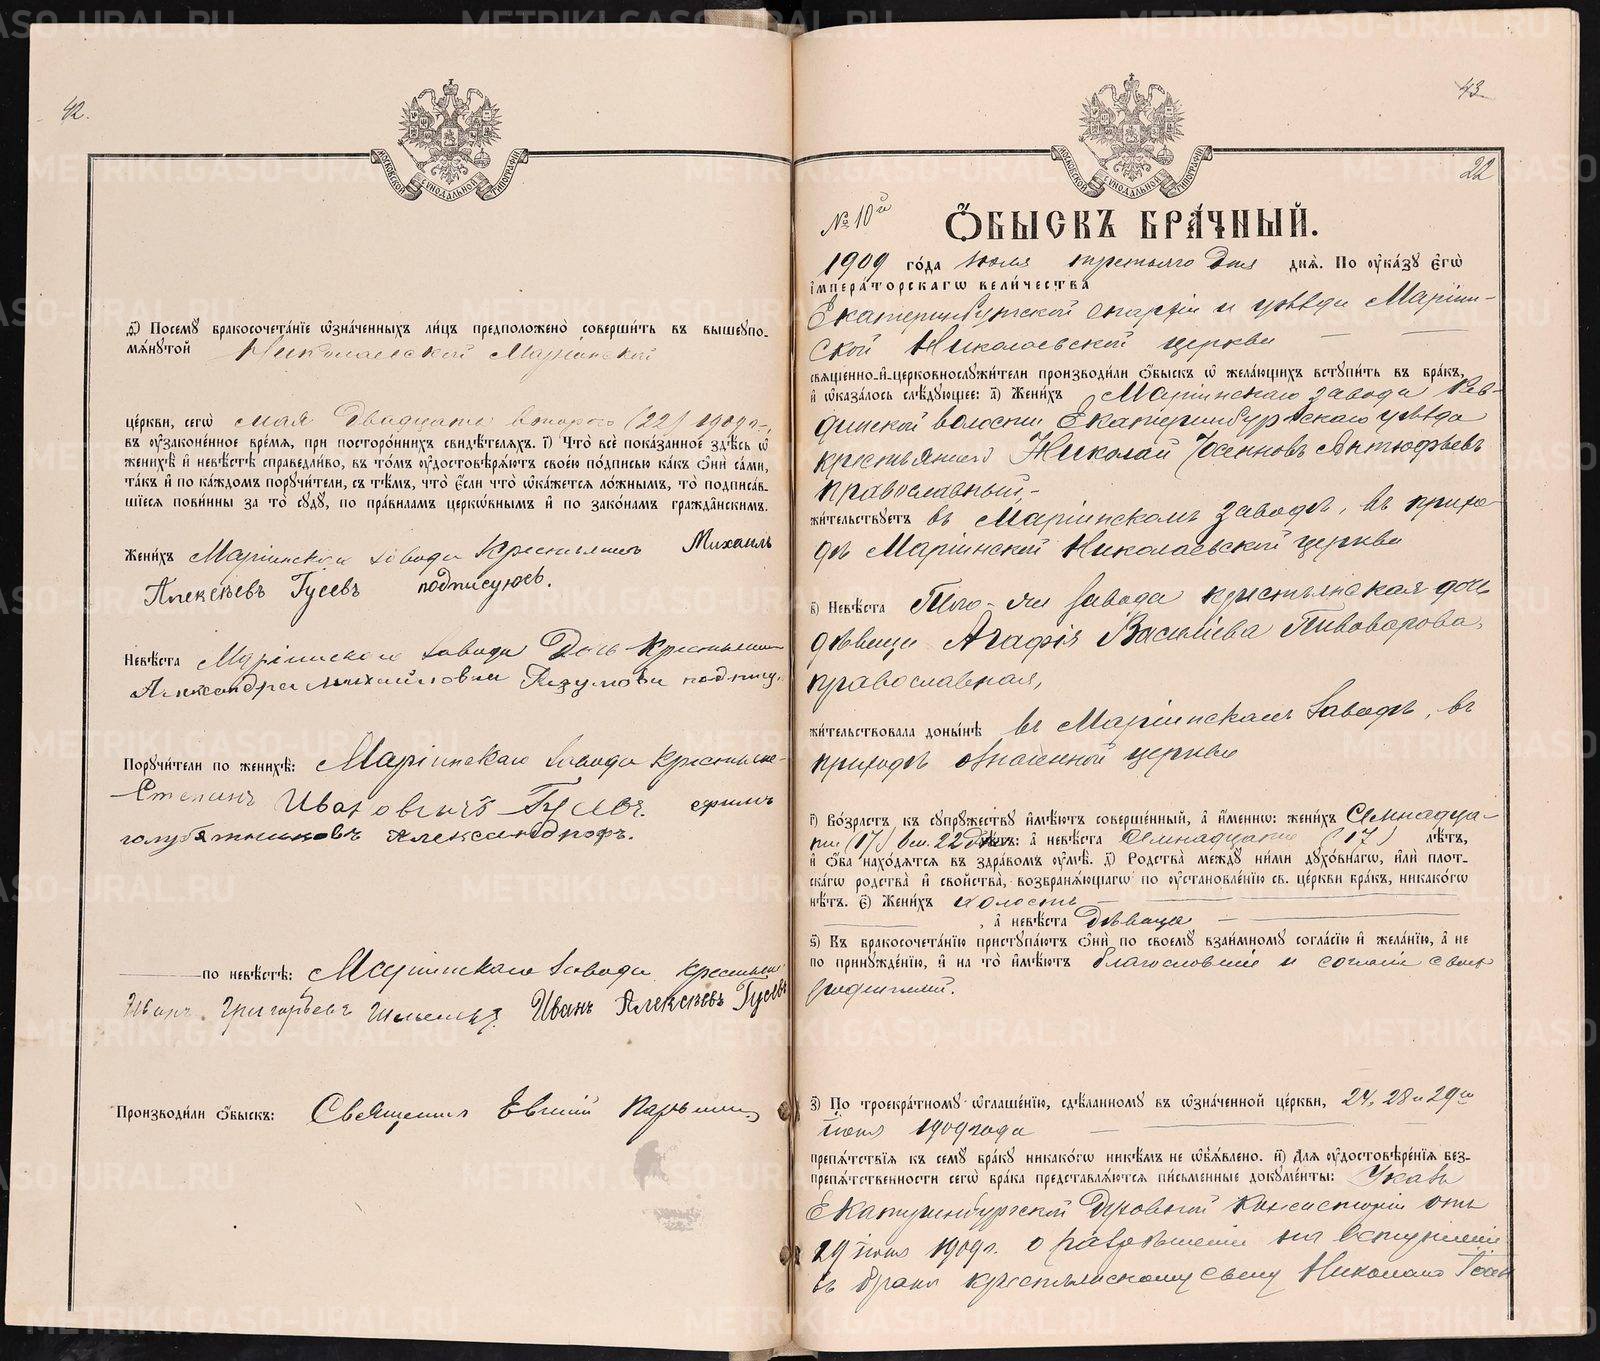 42.
МОСКОВСКОЙ СУНОДАЛЬНОЙ ТИПОГРАФІИ
ѕ҃) Посемꙋ бракосочета́нїе ѡ҆зна́ченныхъ ли́цъ предположено̀ соверши́ть въ вышеꙋпо-
мѧ́нꙋтой Николаевской Маріинской
це́ркви, сегѡ̀ мая двадцать второго (22) 1909 г.,
въ ᲂу҆зако́ненное вре́мѧ, при посторо́ннихъ свидѣ́телѧхъ. і҃) Что̀ всѐ пока́занное здѣ́сь ѡ҆
женихѣ̀ и҆ невѣ́стѣ справедли́во, въ то́мъ ᲂу҆достовѣрѧ́ютъ свое́ю по́дписью ка́къ ѻ҆нѝ са́ми,
та́къ и҆ по ка́ждомъ порꙋчи́тели, съ тѣ́мъ, что̀ є҆́сли что̀ ѡ҆ка́жетсѧ ло́жнымъ, то̀ подписа́в-
шїесѧ пови́нны за то̀ сꙋдꙋ̀, по пра́виламъ церко́внымъ и҆ по зако́намъ гражда́нскимъ.
Жени́хъ Маріинскаго завода Крестьянинъ Михаилъ
Алексѣевъ Гусевъ подписуюсь.
Невѣ́ста Маріинскаго завода Дочь Крестьянина
Александра Михайловна
Порꙋчи́тели по женихѣ̀: Маріинскаго завода крестьяне
Степанъ Ивановичъ Гусевъ. ефимъ
голубятниковъ Александровъ.
по невѣ́стѣ: Маріинскаго завода крестьяне
Иванъ Григорьевъ Иванъ Алексѣевъ Гусевъ
Производи́ли ѻ҆́быскъ: Священникъ Евгеній
43
МОСКОВСКОЙ СУНОДАЛЬНОЙ ТИПОГРАФІИ
22
№ 10й
Ѻ҆́БЫСКЪ БРА́ЧНЫЙ.
1909 го́да Іюля третьяго дня днѧ̀. По ᲂу҆ка́зꙋ є҆гѡ̀
і҆мпера́торскагѡ вели́чества
Екатеринбургской епархіи и уѣзда Маріин-
ской Николаевской церкви
свѧще́нно-и҆-церковнослꙋжи́тели производи́ли ѻ҆́быскъ ѡ҆ жела́ющихъ встꙋпи́ть въ бра́къ,
и҆ ѡ҆каза́лось слѣ́дꙋющее: а҃) Жени́хъ Маріинскаго завода Рев-
динской волости Екатеринбургскаго уѣзда
крестьянинъ Николай Іосифовъ Антюфьевъ
православный,
жи́тельствꙋетъ въ Маріинскомъ заводѣ, въ прихо-
дѣ Маріинской Николаевской церкви
в҃) Невѣ́ста Того-же завода крестьянская дочь
дѣвица Агафія Васильева Пивоварова,
православная,
жи́тельствовала донынѣ̀ въ Маріинскомъ Заводѣ, въ
приходѣ означенной церкви
г҃) Во́зрастъ къ сꙋпрꙋ́жествꙋ и҆мѣ́ютъ соверше́нный, а҆ и҆́менно: жени́хъ Семнадца-
ти (17) лѣ́тъ: а҆ невѣ́ста Семнадцати (17) лѣ́тъ,
и҆ ѻ҆́ба нахо́дѧтсѧ въ здра́вомъ ᲂу҆мѣ̀. д҃) Родства̀ междꙋ̀ ни́ми дꙋхо́внагѡ, и҆лѝ плот-
ска́гѡ родства̀ и҆ сво́йства, возбранѧ́ющагѡ по ᲂу҆становле́нїю св. це́ркви бра́къ, никако́гѡ
нѣ́тъ. є҃) Жени́хъ холостъ
, а҆ невѣ́ста дѣвица
ѕ҃) Въ бракосочета́нїю пристꙋпа́ютъ ѻ҆нѝ по своемꙋ̀ взаи́мномꙋ согла́сїю и҆ жела́нїю, а҆ не
по принꙋжде́нїю, и҆ на то̀ и҆мѣ́ютъ благословеніе и согласіе своихъ
родителей.
з҃) По троекра́тномꙋ ѡ҆глаше́нїю, сдѣ́ланномꙋ въ ѡ҆зна́ченной це́ркви, 24, 28 и 29го
іюня 1909 года
препѧ́тствїѧ къ семꙋ̀ бра́кꙋ никако́гѡ никѣ́мъ не ѡ҆бъѧ́влено. и҃) Для ᲂу҆достовѣре́нїѧ без-
препѧ́тственности сегѡ̀ бра́ка представлѧ́ютсѧ пи́сьменные докꙋме́нты: Указъ
Екатеринбургской Духовной Консисторіи отъ
29 іюня 1909 г. о разрѣшеніи на вступленіе
въ бракъ крестьянскому сыну Николаю Іосиф